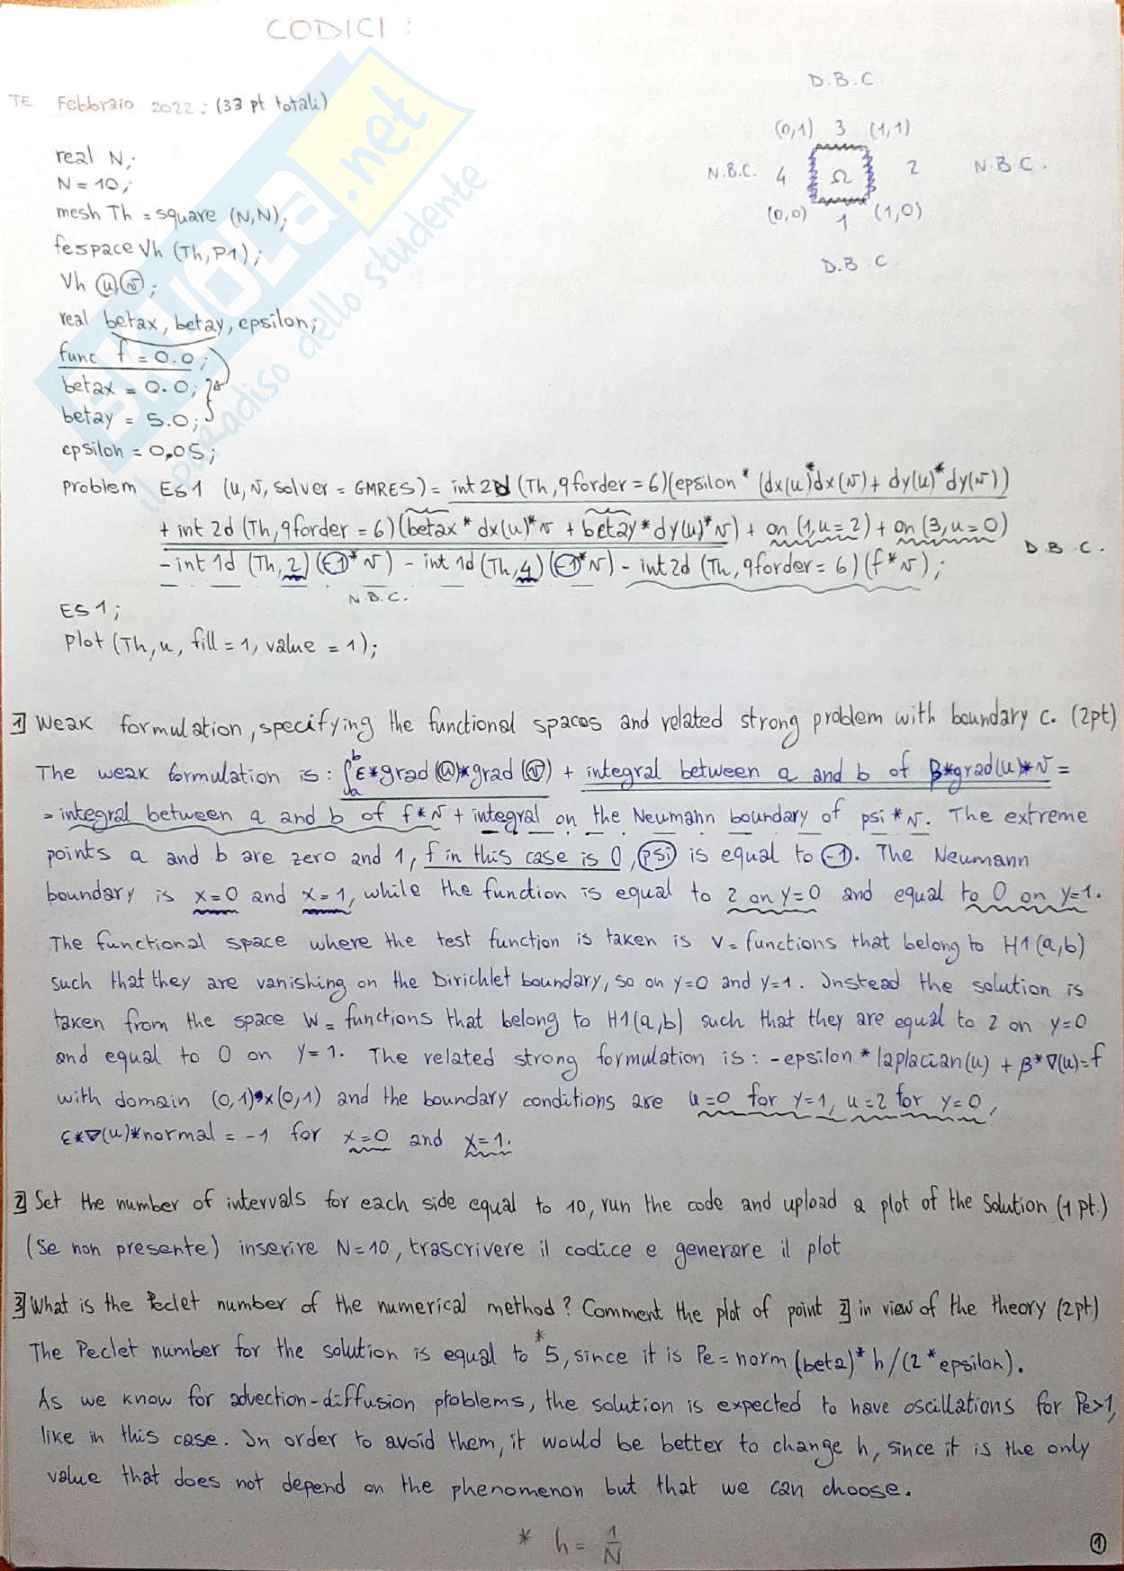 CODICI :
TE Febbraio 2022: (33 pt totali)
real N;
N = 10;
mesh Th = square (N,N);
fespace Vh (Th, P1);
Vh u, v;
real betax, betay, epsilon;
func f = 0.0;
betax = 0.0;
betay = 5.0;
epsilon = 0,05;
problem ES1 (u, v, solver = GMRES) = int2d (Th, qforder = 6)(epsilon * (dx(u)*dx(v) + dy(u)*dy(v))
+ int2d (Th, qforder = 6)(betax * dx(u)*v + betay * dy(u)*v) + on (1, u = 2) + on (3, u = 0)
D.B.C.
- int 1d (Th, 2) (-1 * v) - int 1d (Th, 4) (-1 * v) - int2d (Th, qforder = 6) (f * v);
N.B.C.
ES1;
Plot (Th, u, fill = 1, value = 1);
D.B.C.
(0,1) 3 (1,1)
N.B.C. 4 Ω 2 N.B.C.
(0,0) 1 (1,0)
D.B C.
1] Weak formulation, specifying the functional spaces and related strong problem with boundary c. (2pt)
The weak formulation is : ∫ₐᵇ ε*grad(u)*grad(v) + integral between a and b of β*grad(u)*v =
= integral between a and b of f*v + integral on the Neumann boundary of psi * v. The extreme
points a and b are zero and 1, f in this case is 0, psi is equal to -1. The Neumann
boundary is x=0 and x=1, while the function is equal to 2 on y=0 and equal to 0 on y=1.
The functional space where the test function is taken is V = functions that belong to H1(a,b)
such that they are vanishing on the Dirichlet boundary, so on y=0 and y=1. Instead the solution is
taken from the space W = functions that belong to H1(a,b) such that they are equal to 2 on y=0
and equal to 0 on y=1. The related strong formulation is : -epsilon * laplacian(u) + β*∇(u)=f
with domain (0,1)x(0,1) and the boundary conditions are u=0 for y=1, u=2 for y=0,
ε*∇(u)*normal = -1 for x=0 and x=1.
2] Set the number of intervals for each side equal to 10, run the code and upload a plot of the solution (1 pt.)
(Se non presente) inserire N=10, trascrivere il codice e generare il plot
3] What is the Peclet number of the numerical method? Comment the plot of point 2] in view of the theory (2pt)
The Peclet number for the solution is equal to *5, since it is Pe = norm (beta) * h / (2 * epsilon).
As we know for advection-diffusion problems, the solution is expected to have oscillations for Pe>1,
like in this case. In order to avoid them, it would be better to change h, since it is the only
value that does not depend on the phenomenon but that we can choose.
* h = 1/N
1
SKUOLA.net
il paradiso dello studente